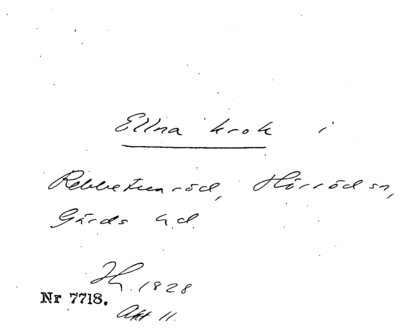 Ellna krok i
Rebbetuaröd, Hörröds sn,
Gärds hd.
H. 1828
Nr 7718.
Akt 11.